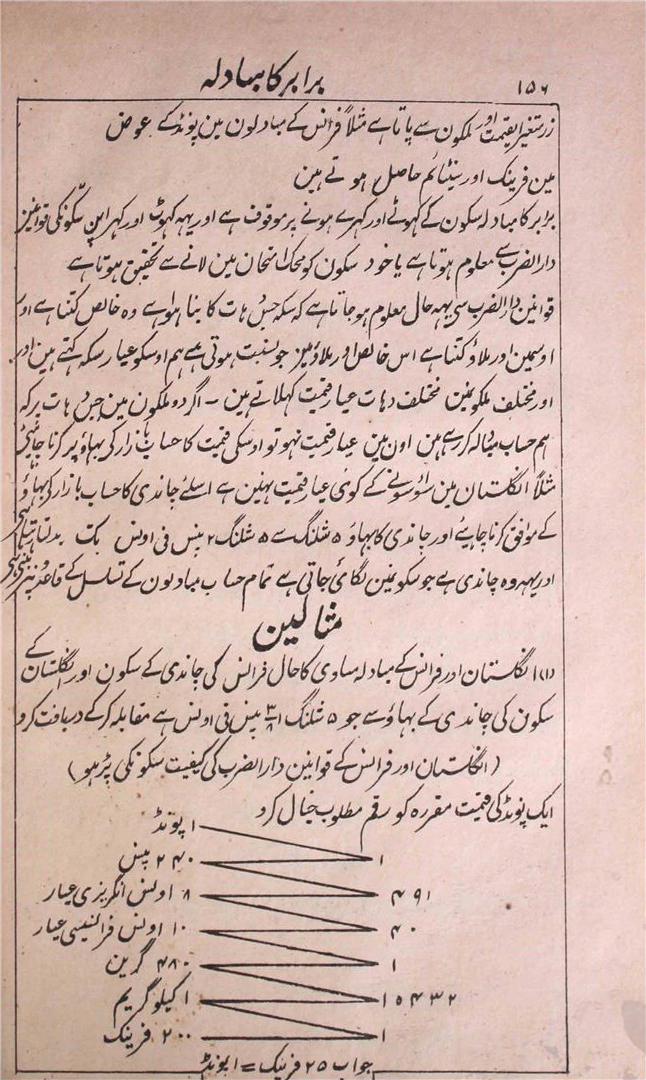 برابر کا مبادلہ
۱۵۶
زر متغیر بقیمت اور ملکون سے پاتا ہے مثلاً فرانس کے مبادلون مین پونڈ کے عوض
مین فرینک اور سینٹائم حاصل ہوتے ہین
برابر کا مبادلہ سکون کے کھوٹے اور کھرے ہونے پر موقوف ہے اور یہہ کھوٹ اور کھراپن سکونکی قوانین
دارالضرب سے معلوم ہوتا ہے یا خود سکون کو محک امتحان مین لانے سے تحقیق ہوتا ہے
قوانین دارالضرب سی یہہ حال معلوم ہو جاتا ہے کہ سکہ جس دہات کا بنا ہوا ہے وہ خالص کتنا ہے اور
اوسمین اور ملاؤ کتنا ہے اس خالص اور ملاؤ مین جو نسبت ہوتی ہے ہم اوسکو عیار سکہ کہتے ہین اور
اور مختلف ملکونمین مختلف دہات عیار قیمت کہلاتے ہین - اگر دو ملکون مین جس دہات پر کہ
ہم حساب مبادلہ کر رہے ہین اون مین عیار قیمت نہو تو اوسکی قیمت کا حساب بازار کی بہاؤ پر کرنا چاہئیے
مثلاً انگلستان مین سوائے سونے کے کوئی عیار قیمت نہین ہے اسلئے چاندی کا حساب بازار کی بہاؤ
کے موافق کرنا چاہیئے اور چاندی کا بہاؤ ۵ شلنگ سے ۵ شلنگ ۲ پنس فی اونس تک بدلتا رہتا ہے
اور یہہ وہ چاندی ہے جو سکونمین لگائی جاتی ہے تمام حساب مبادلون کے تسلسل کے قاعدہ پر مبنی ہین
مثالین
(۱) انگلستان اور فرانس کے مبادلہ مساوی کا حال فرانس کی چاندی کے سکون اور انگلستان کے
سکون کی چاندی کے بہاؤ سے جو ۵ شلنگ ۱ ۳/۸ پنس فی اونس ہے مقابلہ کر کے دریافت کرو
(انگلستان اور فرانس کے قوانین دارالضرب کی کیفیت سکونکی پڑہو)
ایک پونڈ کی قیمت مقررہ کو رقم مطلوب خیال کرو
۱ پونڈ
۱ ۲۴۰ پنس
۴۹۱ ۸ اونس انگریزی عیار
۴۰ ۱۰ اونس فرانسیسی عیار
۱ ۴۸۰ گرین
۱۵۴۳۲ ۱ کیلوگریم
۱ ۲۰۰ فرینک
جواب ۲۵ فرینک = ۱ پونڈ